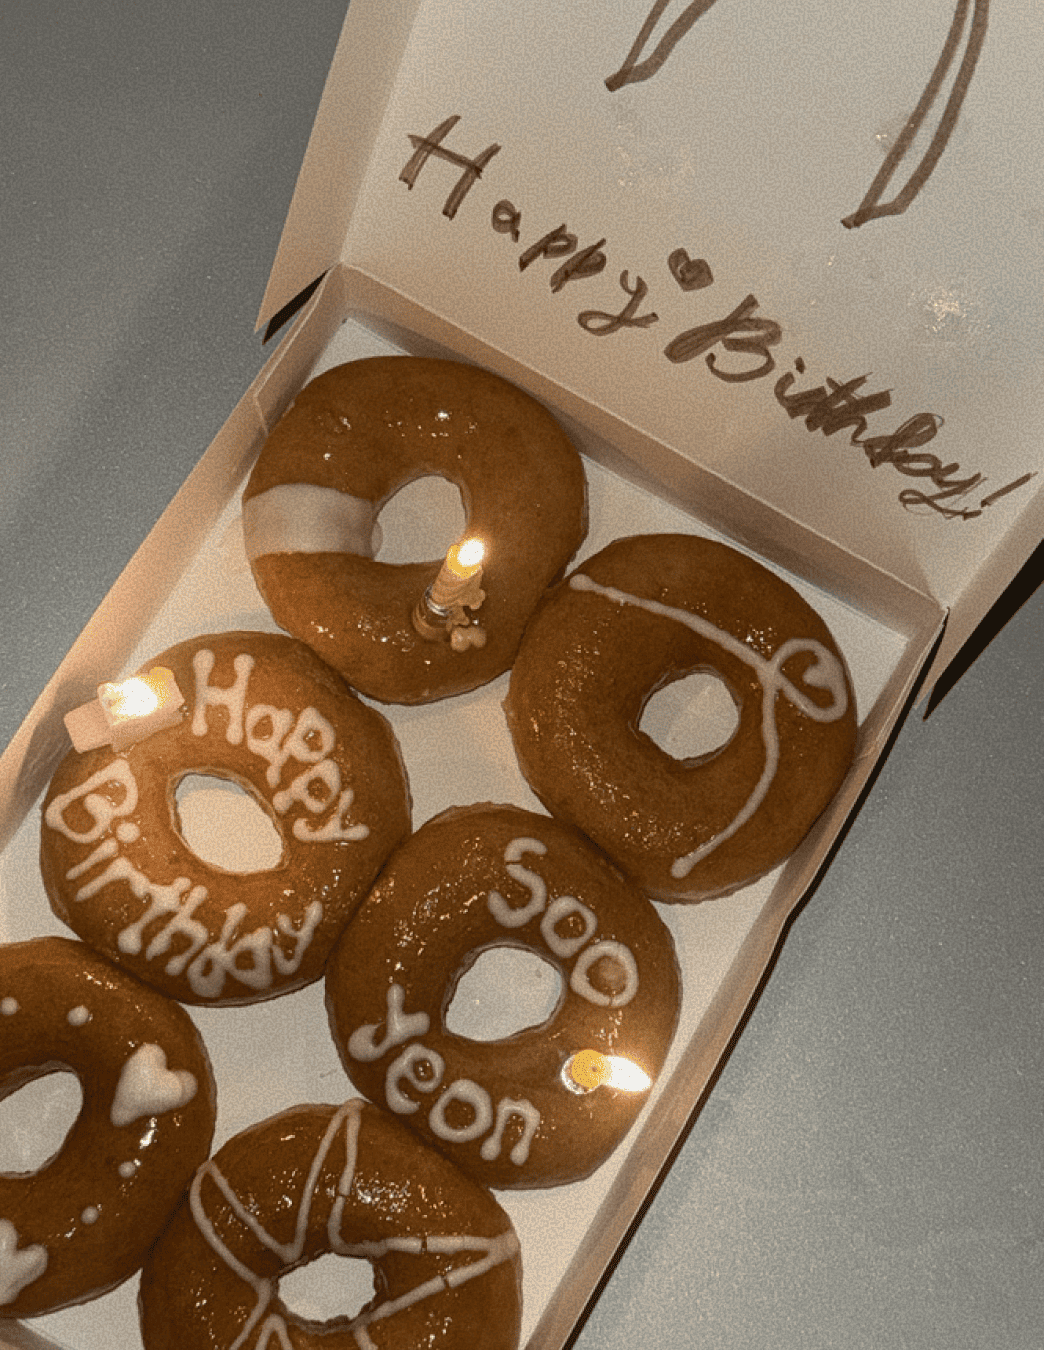 Happy Birthday!
Happy
Birthday
Soo
yeon